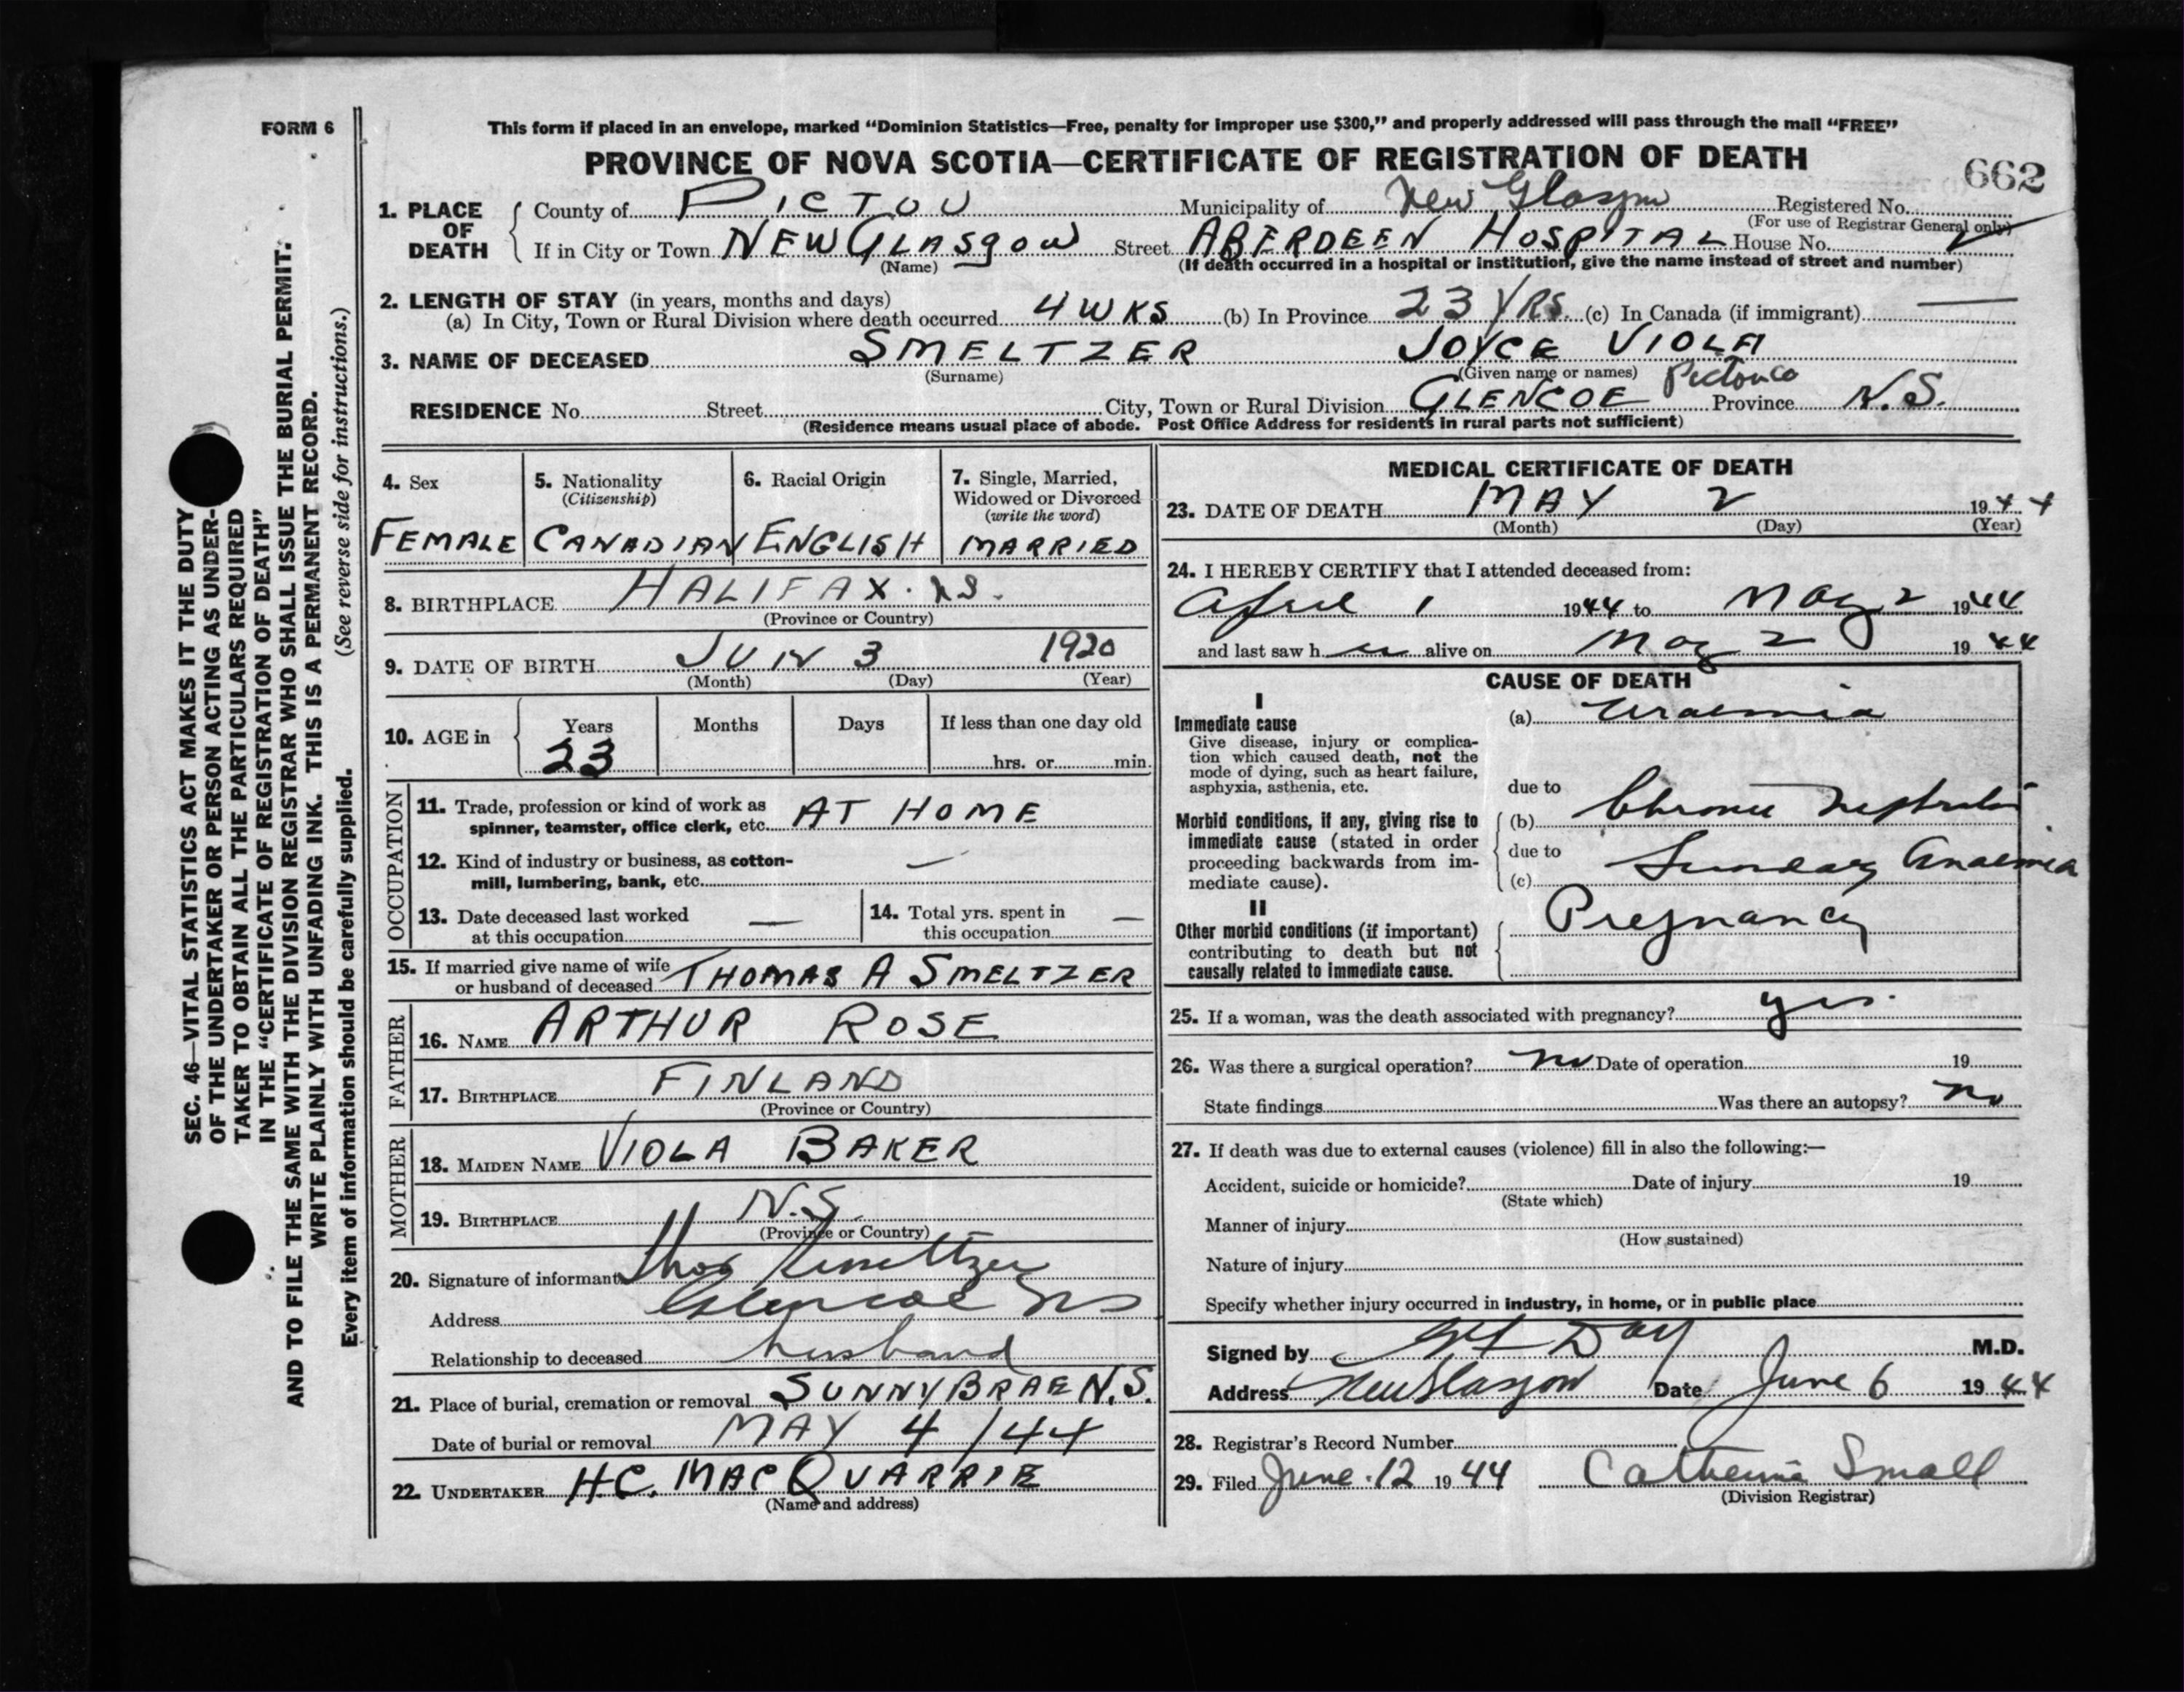 FORM 6
This form if placed in an envelope, marked “Dominion Statistics—Free, penalty for improper use $300,” and properly addressed will pass through the mail “FREE”
PROVINCE OF NOVA SCOTIA—CERTIFICATE OF REGISTRATION OF DEATH
662
1. PLACE OF DEATH
County of PICTOU Municipality of New Glasgow Registered No.
(For use of Registrar General only)
If in City or Town NEW GLASGOW Street ABERDEEN HOSPITAL House No.
(Name) (If death occurred in a hospital or institution, give the name instead of street and number)
2. LENGTH OF STAY (in years, months and days)
(a) In City, Town or Rural Division where death occurred 4 WKS (b) In Province 23 YRS. (c) In Canada (if immigrant) —
3. NAME OF DECEASED SMELTZER JOYCE VIOLA
(Surname) (Given name or names) Pictou Co
RESIDENCE No. Street City, Town or Rural Division GLENCOE Province N.S.
(Residence means usual place of abode. Post Office Address for residents in rural parts not sufficient)
4. Sex
FEMALE
5. Nationality
(Citizenship)
CANADIAN
6. Racial Origin
ENGLISH
7. Single, Married,
Widowed or Divorced
(write the word)
MARRIED
8. BIRTHPLACE HALIFAX. NS.
(Province or Country)
9. DATE OF BIRTH JUN 3 1920
(Month) (Day) (Year)
10. AGE in
Years Months Days If less than one day old
23 hrs. or min.
OCCUPATION
11. Trade, profession or kind of work as
spinner, teamster, office clerk, etc. AT HOME
12. Kind of industry or business, as cotton-
mill, lumbering, bank, etc. —
13. Date deceased last worked
at this occupation —
14. Total yrs. spent in
this occupation —
15. If married give name of wife
or husband of deceased THOMAS A SMELTZER
FATHER
16. NAME ARTHUR ROSE
17. BIRTHPLACE FINLAND
(Province or Country)
MOTHER
18. MAIDEN NAME VIOLA BAKER
19. BIRTHPLACE N.S.
(Province or Country)
20. Signature of informant Thos Smeltzer
Address Glencoe NS
Relationship to deceased husband
21. Place of burial, cremation or removal SUNNYBRAE N.S.
Date of burial or removal MAY 4/44
22. UNDERTAKER H.C. MACQUARRIE
(Name and address)
MEDICAL CERTIFICATE OF DEATH
23. DATE OF DEATH MAY 2 1944
(Month) (Day) (Year)
24. I HEREBY CERTIFY that I attended deceased from:
April 1 1944 to May 2 1944
and last saw h er alive on May 2 1944
CAUSE OF DEATH
I
Immediate cause
Give disease, injury or complica-
tion which caused death, not the
mode of dying, such as heart failure,
asphyxia, asthenia, etc.
(a) Uraemia
due to
Morbid conditions, if any, giving rise to
immediate cause (stated in order
proceeding backwards from im-
mediate cause).
(b) Chronic Nephritis
due to
(c) Secondary Anaemia
II
Other morbid conditions (if important)
contributing to death but not
causally related to immediate cause.
Pregnancy
25. If a woman, was the death associated with pregnancy? yes.
26. Was there a surgical operation? no Date of operation 19
State findings Was there an autopsy? no
27. If death was due to external causes (violence) fill in also the following:—
Accident, suicide or homicide? Date of injury 19
(State which)
Manner of injury
(How sustained)
Nature of injury
Specify whether injury occurred in industry, in home, or in public place
Signed by Day M.D.
Address New Glasgow Date June 6 1944
28. Registrar's Record Number
29. Filed June 12 1944 Catherine Small
(Division Registrar)
SEC. 46—VITAL STATISTICS ACT MAKES IT THE DUTY
OF THE UNDERTAKER OR PERSON ACTING AS UNDER-
TAKER TO OBTAIN ALL THE PARTICULARS REQUIRED
IN THE “CERTIFICATE OF REGISTRATION OF DEATH”
AND TO FILE THE SAME WITH THE DIVISION REGISTRAR WHO SHALL ISSUE THE BURIAL PERMIT.
WRITE PLAINLY WITH UNFADING INK. THIS IS A PERMANENT RECORD.
Every item of information should be carefully supplied. (See reverse side for instructions.)